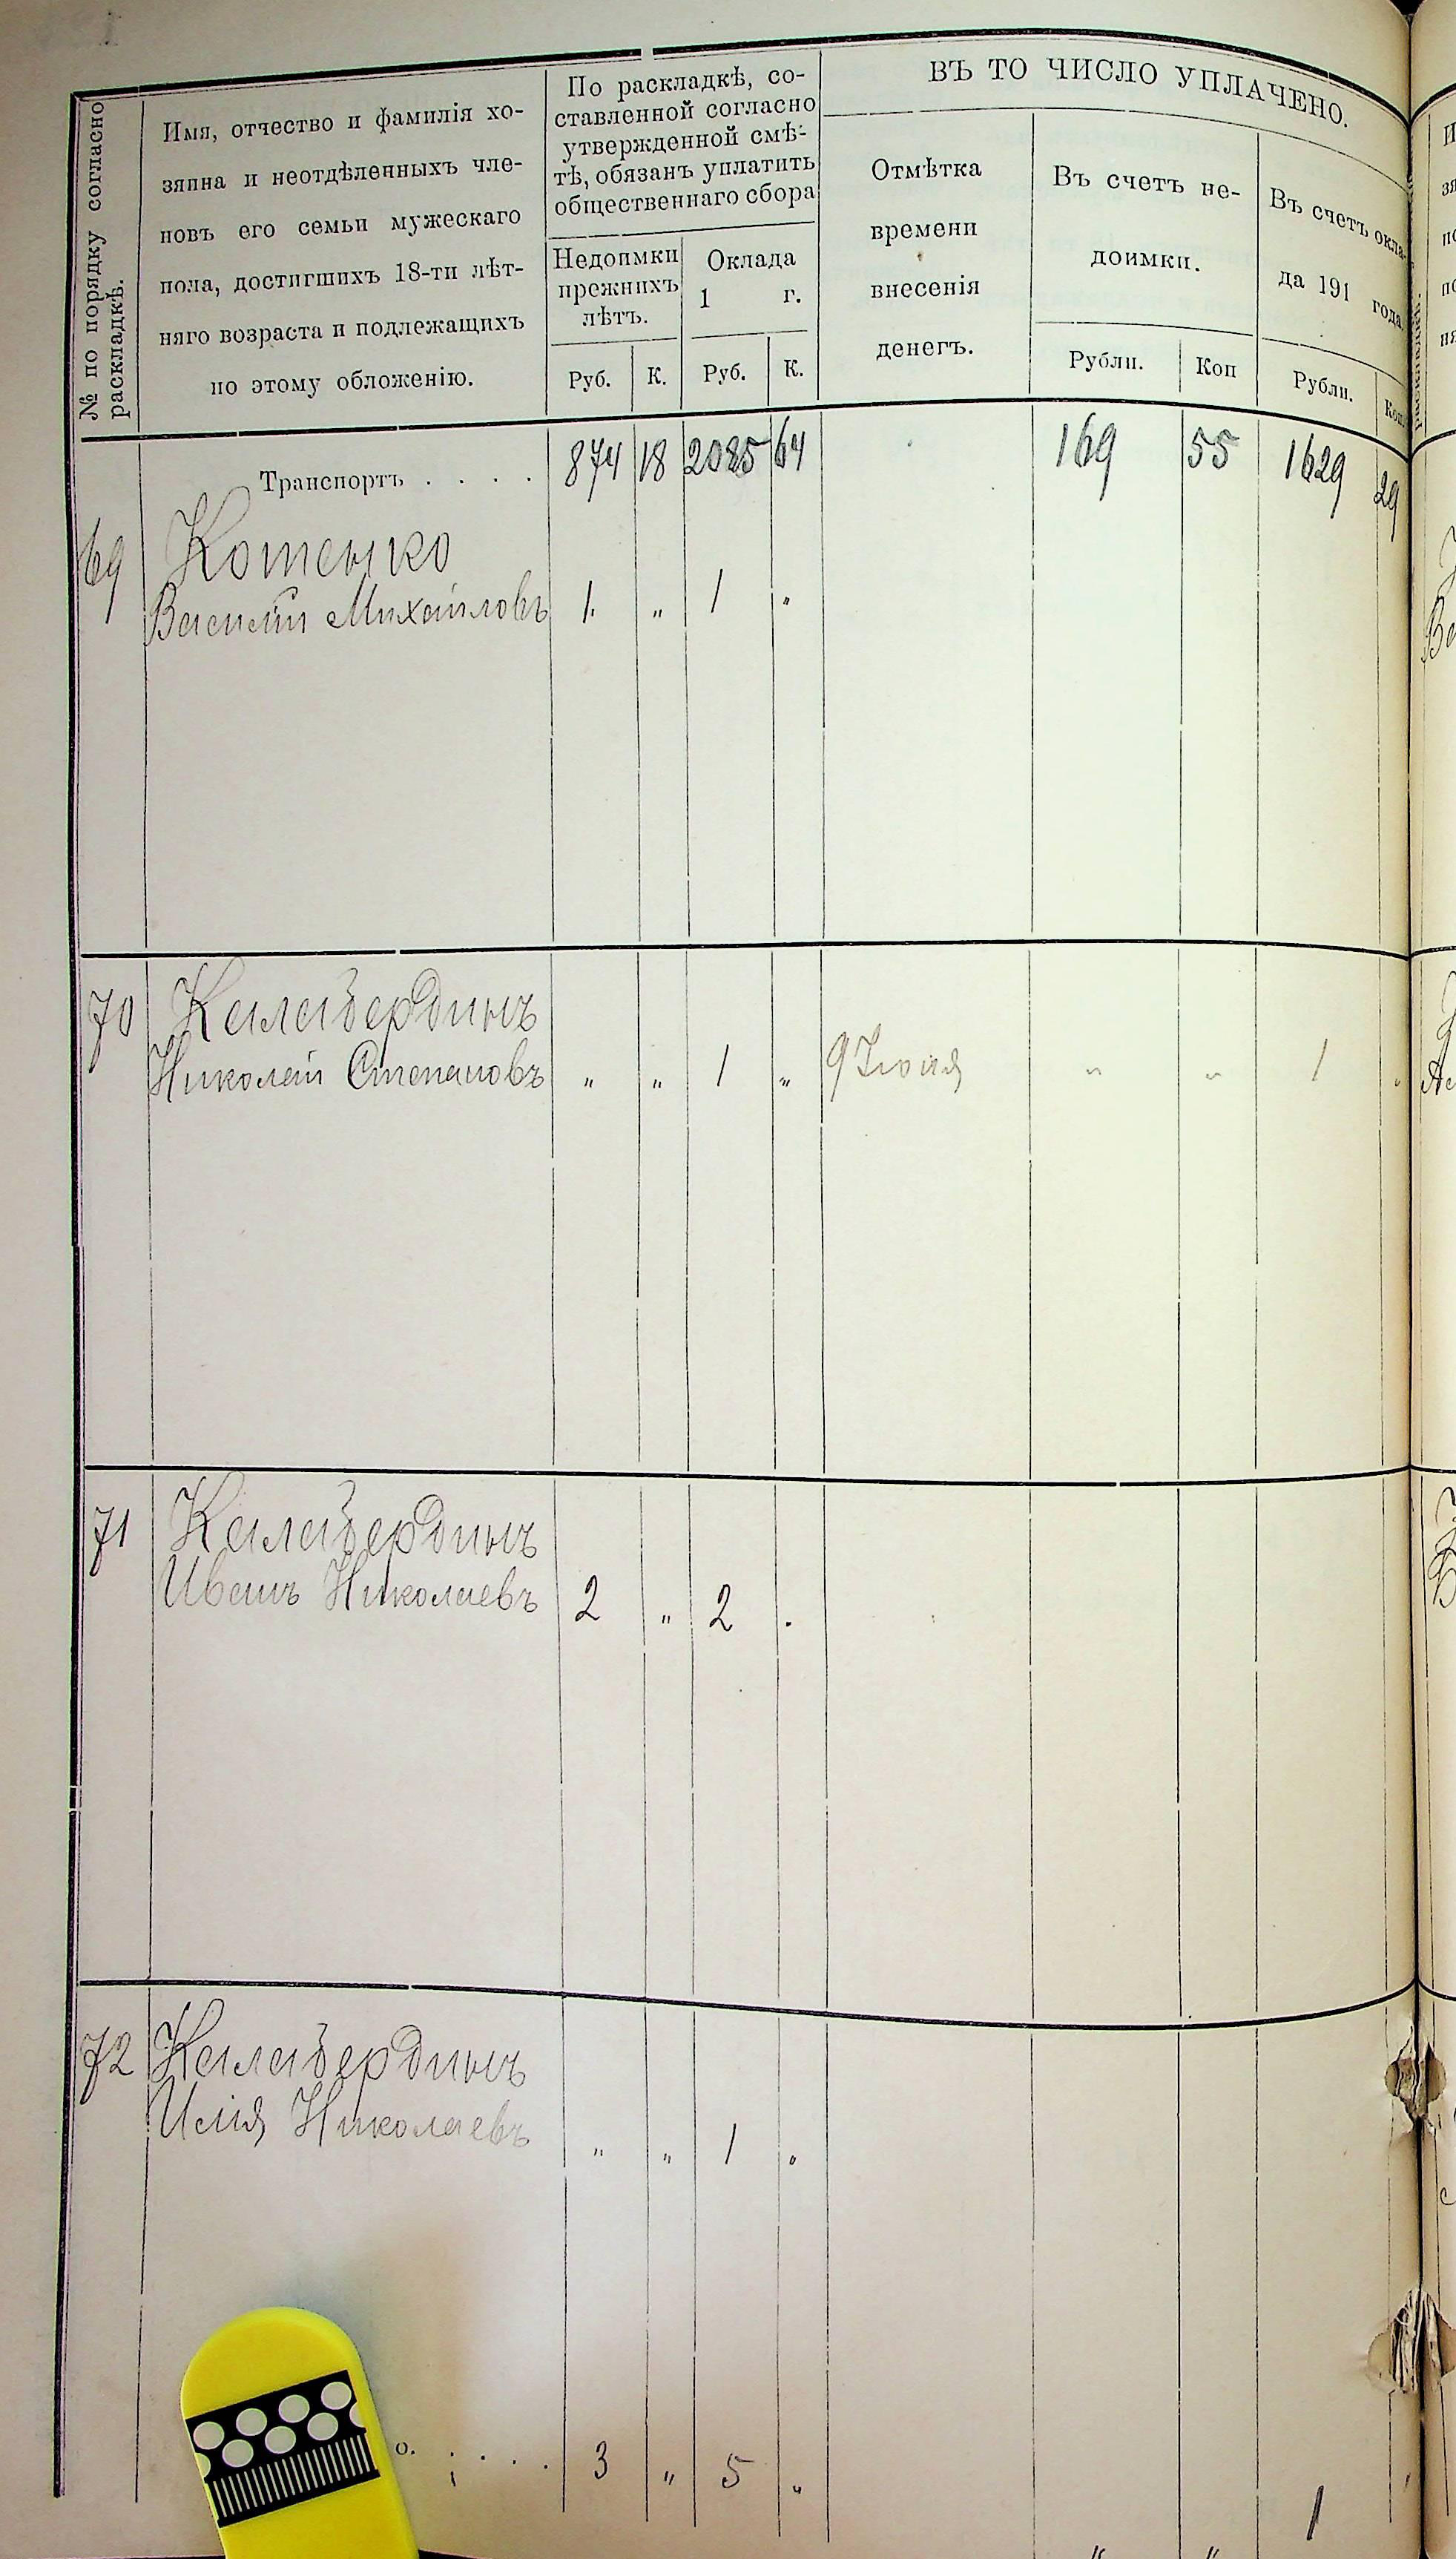 № по порядку согласно
раскладкѣ.
Имя, отчество и фамилія хо-
зяина и неотдѣленныхъ чле-
новъ его семьи мужескаго
пола, достигшихъ 18-ти лѣт-
няго возраста и подлежащихъ
по этому обложенію.
По раскладкѣ, со-
ставленной согласно
утвержденной смѣ-
тѣ, обязанъ уплатить
общественнаго сбора
Недоимки
прежнихъ
лѣтъ.
Оклада
1 г.
Руб. К. Руб. К.
ВЪ ТО ЧИСЛО УПЛАЧЕНО.
Отмѣтка
времени
внесенія
денегъ.
Въ счетъ не-
доимки.
Рубли. Коп
Въ счетъ окла-
да 191 года.
Рубли. Коп.
Транспортъ . . . . 874 18 2085 64 169 55 1629 29
69 Котенко
Василій Михайловъ 1. „ 1 „
70 Калабердинъ
Николай Степановъ „ „ 1 „ 9 Іюня „ „ 1
71 Калабердинъ
Иванъ Николаевъ 2 „ 2 .
72 Калабердинъ
Илія Николаевъ „ „ 1 „
о. . . . . 3 „ 5 „
„ „ 1